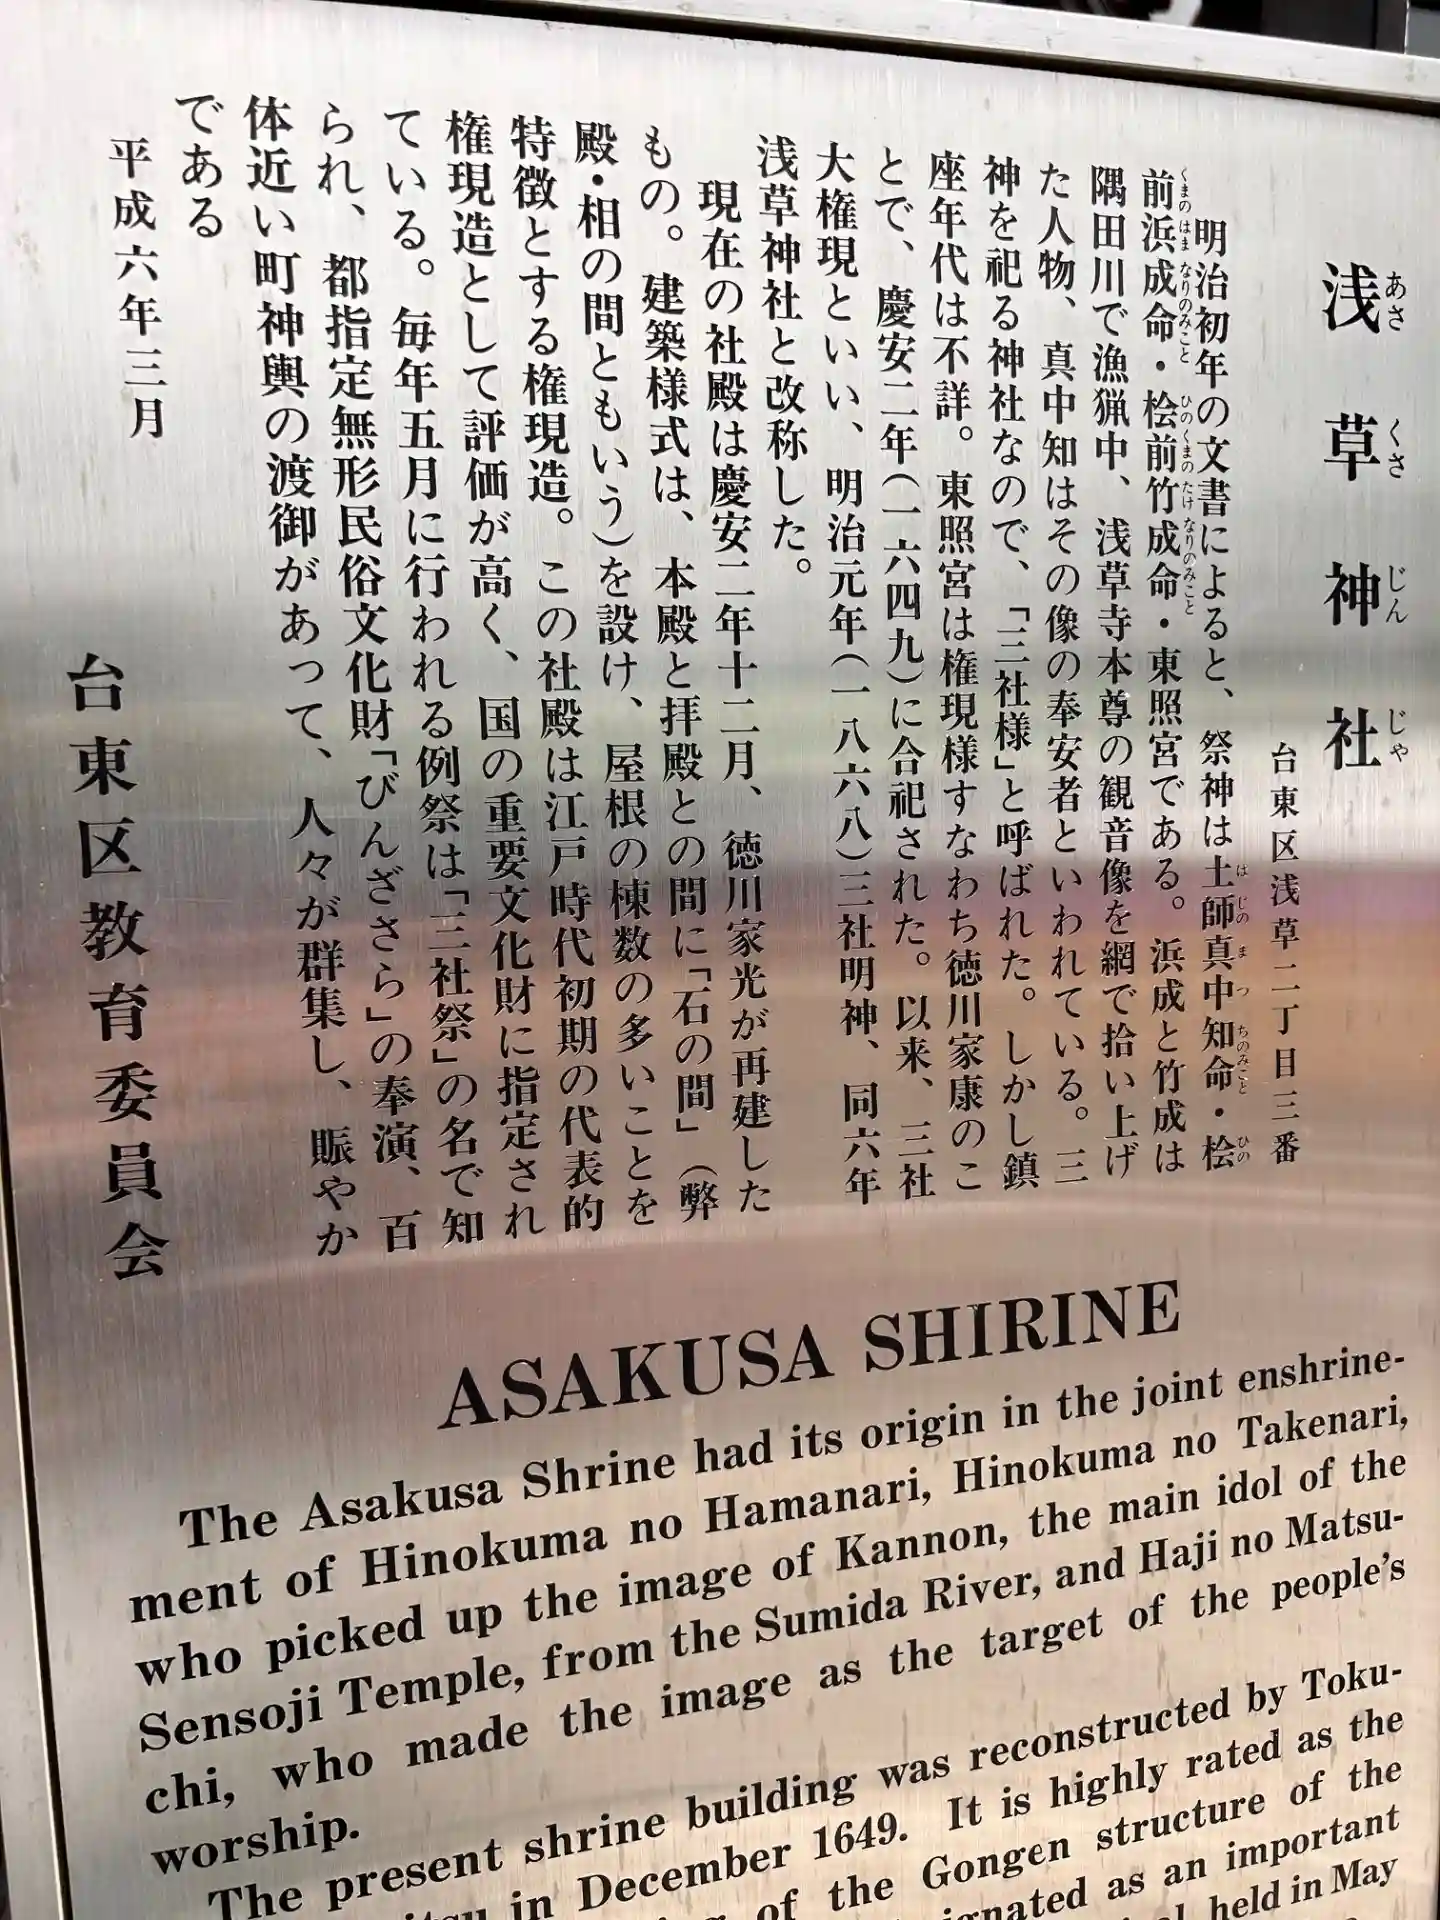 浅草神社
あさくさじんじゃ
台東区浅草二丁目三番
明治初年の文書によると、祭神は土師真中知命・桧
はじのまつちのみこと ひの
前浜成命・桧前竹成命・東照宮である。浜成と竹成は
くまのはまなりのみこと ひのくまのたけなりのみこと
隅田川で漁猟中、浅草寺本尊の観音像を網で拾い上げ
た人物、真中知はその像の奉安者といわれている。三
神を祀る神社なので、「三社様」と呼ばれた。しかし鎮
座年代は不詳。東照宮は権現様すなわち徳川家康のこ
とで、慶安二年(一六四九)に合祀された。以来、三社
大権現といい、明治元年(一八六八)三社明神、同六年
浅草神社と改称した。
現在の社殿は慶安二年十二月、徳川家光が再建した
もの。建築様式は、本殿と拝殿との間に「石の間」(弊
殿・相の間ともいう)を設け、屋根の棟数の多いことを
特徴とする権現造。この社殿は江戸時代初期の代表的
権現造として評価が高く、国の重要文化財に指定され
ている。毎年五月に行われる例祭は「三社祭」の名で知
られ、都指定無形民俗文化財「びんざさら」の奉演、百
体近い町神輿の渡御があって、人々が群集し、賑やか
である
平成六年三月
台東区教育委員会
ASAKUSA SHIRINE
The Asakusa Shrine had its origin in the joint enshrine-
ment of Hinokuma no Hamanari, Hinokuma no Takenari,
who picked up the image of Kannon, the main idol of the
Sensoji Temple, from the Sumida River, and Haji no Matsu-
chi, who made the image as the target of the people's
worship.
The present shrine building was reconstructed by Toku-
in December 1649. It is highly rated as the
of the Gongen structure of the
as an important
held in May